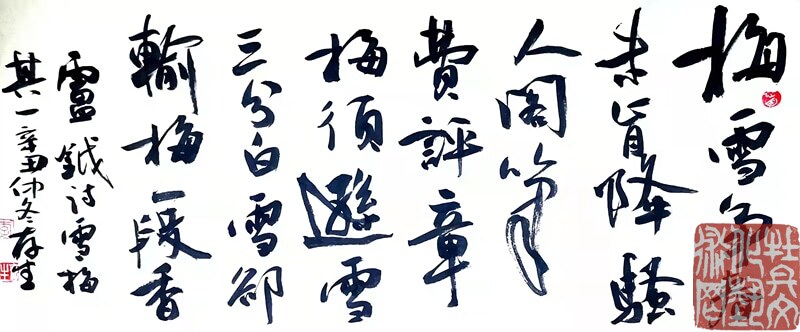 梅雪争
未肯降騷
人閣筆
費評章
梅須遜雪
三分白雪卻
輸梅一段香
盧鉞詩雪梅
其一辛丑仲冬存生